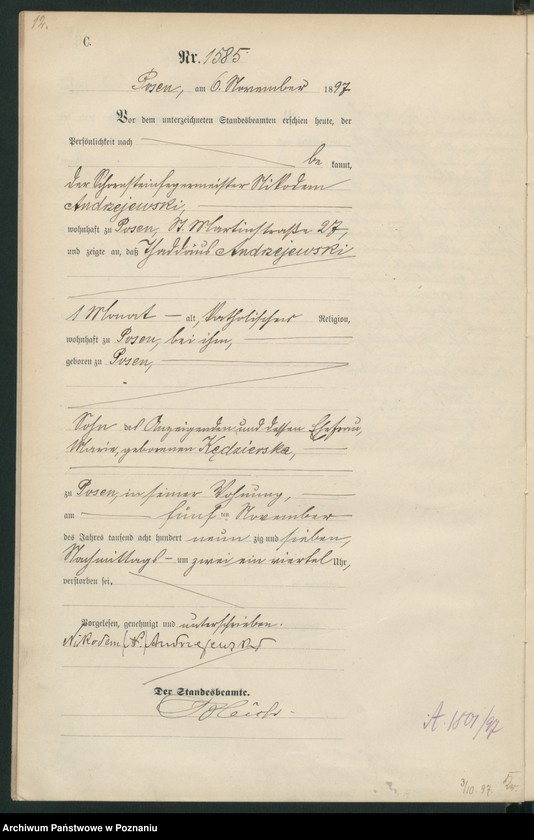 12.
C.
Nr. 1585
Posen, am 6. November 1897
Vor dem unterzeichneten Standesbeamten erschien heute, der
Persönlichkeit nach
be kannt,
der Schornsteinfegermeister Nikodem
Andrzejewski,
wohnhaft zu Posen, St. Martinstraße 27,
und zeigte an, daß Thaddäus Andrzejewski
1 Monat alt, katholischer Religion,
wohnhaft zu Posen, bei ihm,
geboren zu Posen,
Sohn des Anzeigenden und dessen Ehefrau,
Marie, geborenen Kędzierska,
zu Posen, in seiner Wohnung,
am fünf ten November
des Jahres tausend acht hundert neun zig und sieben,
Nachmittags um zwei ein viertel Uhr,
verstorben sei.
Vorgelesen, genehmigt und unterschrieben.
Nikodem (N.) Andrzejewski
Der Standesbeamte.
A. 1501/97
3/10. 97.
Archiwum Państwowe w Poznaniu